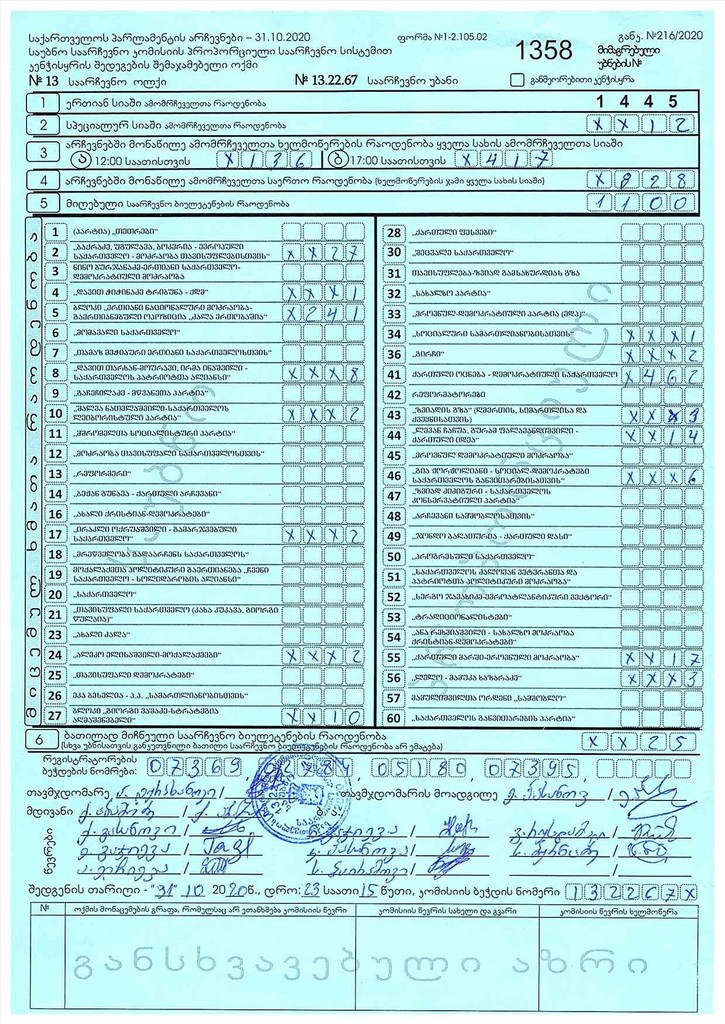 საქართველოს პარლამენტის არჩევნები – 31.10.2020 ფორმა №1-2.105.02 განკ. №216/2020
საუბნო საარჩევნო კომისიის პროპორციული საარჩევნო სისტემით
კენჭისყრის შედეგების შემაჯამებელი ოქმი 1358 მიმაგრებული უბნების №
№ 13 საარჩევნო ოლქი № 13.22.67 საარჩევნო უბანი განმეორებითი კენჭისყრა
1 ერთიან სიაში ამომრჩეველთა რაოდენობა 1 4 4 5
2 სპეციალურ სიაში ამომრჩეველთა რაოდენობა X X 1 2
3 არჩევნებში მონაწილე ამომრჩეველთა ხელმოწერების რაოდენობა ყველა სახის ამომრჩეველთა სიაში
ა 12:00 საათისთვის X 1 3 6 ბ 17:00 საათისთვის X 4 1 7
4 არჩევნებში მონაწილე ამომრჩეველთა საერთო რაოდენობა (ხელმოწერების ჯამი ყველა სახის სიაში) X 8 2 8
5 მიღებული საარჩევნო ბიულეტენების რაოდენობა 1 1 0 0
1 (პარტია) „თეთრები“
2 „ბაქრაძე, უგულავა, ბოკერია - ევროპული საქართველო - მოძრაობა თავისუფლებისთვის“ X X 2 7
3 ნინო ბურჯანაძე-ერთიანი საქართველო-დემოკრატიული მოძრაობა
4 „დავით ჭიჭინაძე ტრიბუნა - ქდმ“ X X X 1
5 ბლოკი „ერთიანი ნაციონალური მოძრაობა-გაერთიანებული ოპოზიცია „ძალა ერთობაშია“ X 2 4 1
6 „მომავალი საქართველო“
7 „თამაზ მეჭიაური ერთიანი საქართველოსთვის“
8 „დავით თარხან-მოურავი, ირმა ინაშვილი - საქართველოს პატრიოტთა ალიანსი“ X X X 8
9 „გაჩეჩილაძე - მწვანეთა პარტია“
10 „შალვა ნათელაშვილი-საქართველოს ლეიბორისტული პარტია“ X X X 2
11 „მშრომელთა სოციალისტური პარტია“
12 „მოძრაობა თავისუფალი საქართველოსთვის“
13 „რეფორმერი“
14 „ბექან გუნავა - ქართული არჩევანი“
16 „ახალი ქრისტიან-დემოკრატები“
17 „ირაკლი ოქრუაშვილი - გამარჯვებული საქართველო“ X X X 2
18 „მრეწველობა გადაარჩენს საქართველოს“
19 მოქალაქეთა პოლიტიკური გაერთიანება „ჩვენი საქართველო - სოლიდარობის ალიანსი“
20 „საქართველო“
21 „თავისუფალი საქართველო (კახა კუკავა, გიორგი წულაია)“
23 „ახალი ძალა“
24 „ალეკო ელისაშვილი-მოქალაქეები“ X X X 2
25 „თავისუფალი დემოკრატები“
26 ეკა ბესელია - პ.პ. „სამართლიანობისთვის“
27 ბლოკი „გიორგი ვაშაძე-სტრატეგია აღმაშენებელი“ X X 1 0
28 „ქართული ფესვები“
30 „შეცვალე საქართველო“
31 თავისუფლება-ზვიად გამსახურდიას გზა
32 „სახალხო პარტია“
33 „ეროვნულ-დემოკრატიული პარტია (ედპ)“
34 „სოციალური სამართლიანობისათვის“ X X X 1
36 „გირჩი“ X X X 2
41 „ქართული ოცნება - დემოკრატიული საქართველო“ X 4 6 2
42 რეფორმატორები
43 „ზვიადის გზა“ (ღვთისის, სიმართლისა და ქვეყნისათვის) X X X 3
44 „ლევან ჩაჩუა, გურამ ფალავანდიშვილი - ქართული იდეა“ X X 1 4
45 „ეროვნული დემოკრატიული მოძრაობა“
46 „გია ჟორჟოლიანი - სოციალ-დემოკრატები საქართველოს განვითარებისთვის“ X X X 6
47 „ზვიად ძიძიგური - საქართველოს კონსერვატიული პარტია“
48 „არჩევანი სამშობლოსათვის“
49 „ჟონდო ბაღათურია - ქართული დასი“
50 „პროგრესული საქართველო“
51 „საქართველოს ძალოვან ვეტერანთა და პატრიოტთა პოლიტიკური მოძრაობა“
52 „სერგო ჯავახიძე-ევროატლანტიკური ვექტორი“
53 „ტრადიციონალისტები“
54 „ანა რეხვიაშვილი - სახალხო მოძრაობა ქრისტიან-დემოკრატები“
55 „ქართული მარში-ეროვნული მოძრაობა“ X X 1 7
56 „ლელო - მამუკა ხაზარაძე“ X X X 3
57 მამულიშვილთა ორდენი „სამშობლო“
60 „საქართველოს განვითარების პარტია“
6 ბათილად მიჩნეული საარჩევნო ბიულეტენების რაოდენობა
(სხვა უბნისათვის განკუთვნილი ბათილი საარჩევნო ბიულეტენების რაოდენობა არ ემატება) X X 2 5
რეგისტრატორების
ბეჭდების ნომრები: 07369 02784 05180 07395
თავმჯდომარე თავმჯდომარის მოადგილე
მდივანი
წევრები
შედგენის თარიღი - "31" 10 2020წ., დრო: 23 საათი 15 წუთი, კომისიის ბეჭდის ნომერი 132267X
№ ოქმის მონაცემების გრაფა, რომელსაც არ ეთანხმება კომისიის წევრი კომისიის წევრის სახელი და გვარი კომისიის წევრის ხელმოწერა
განსხვავებული აზრი